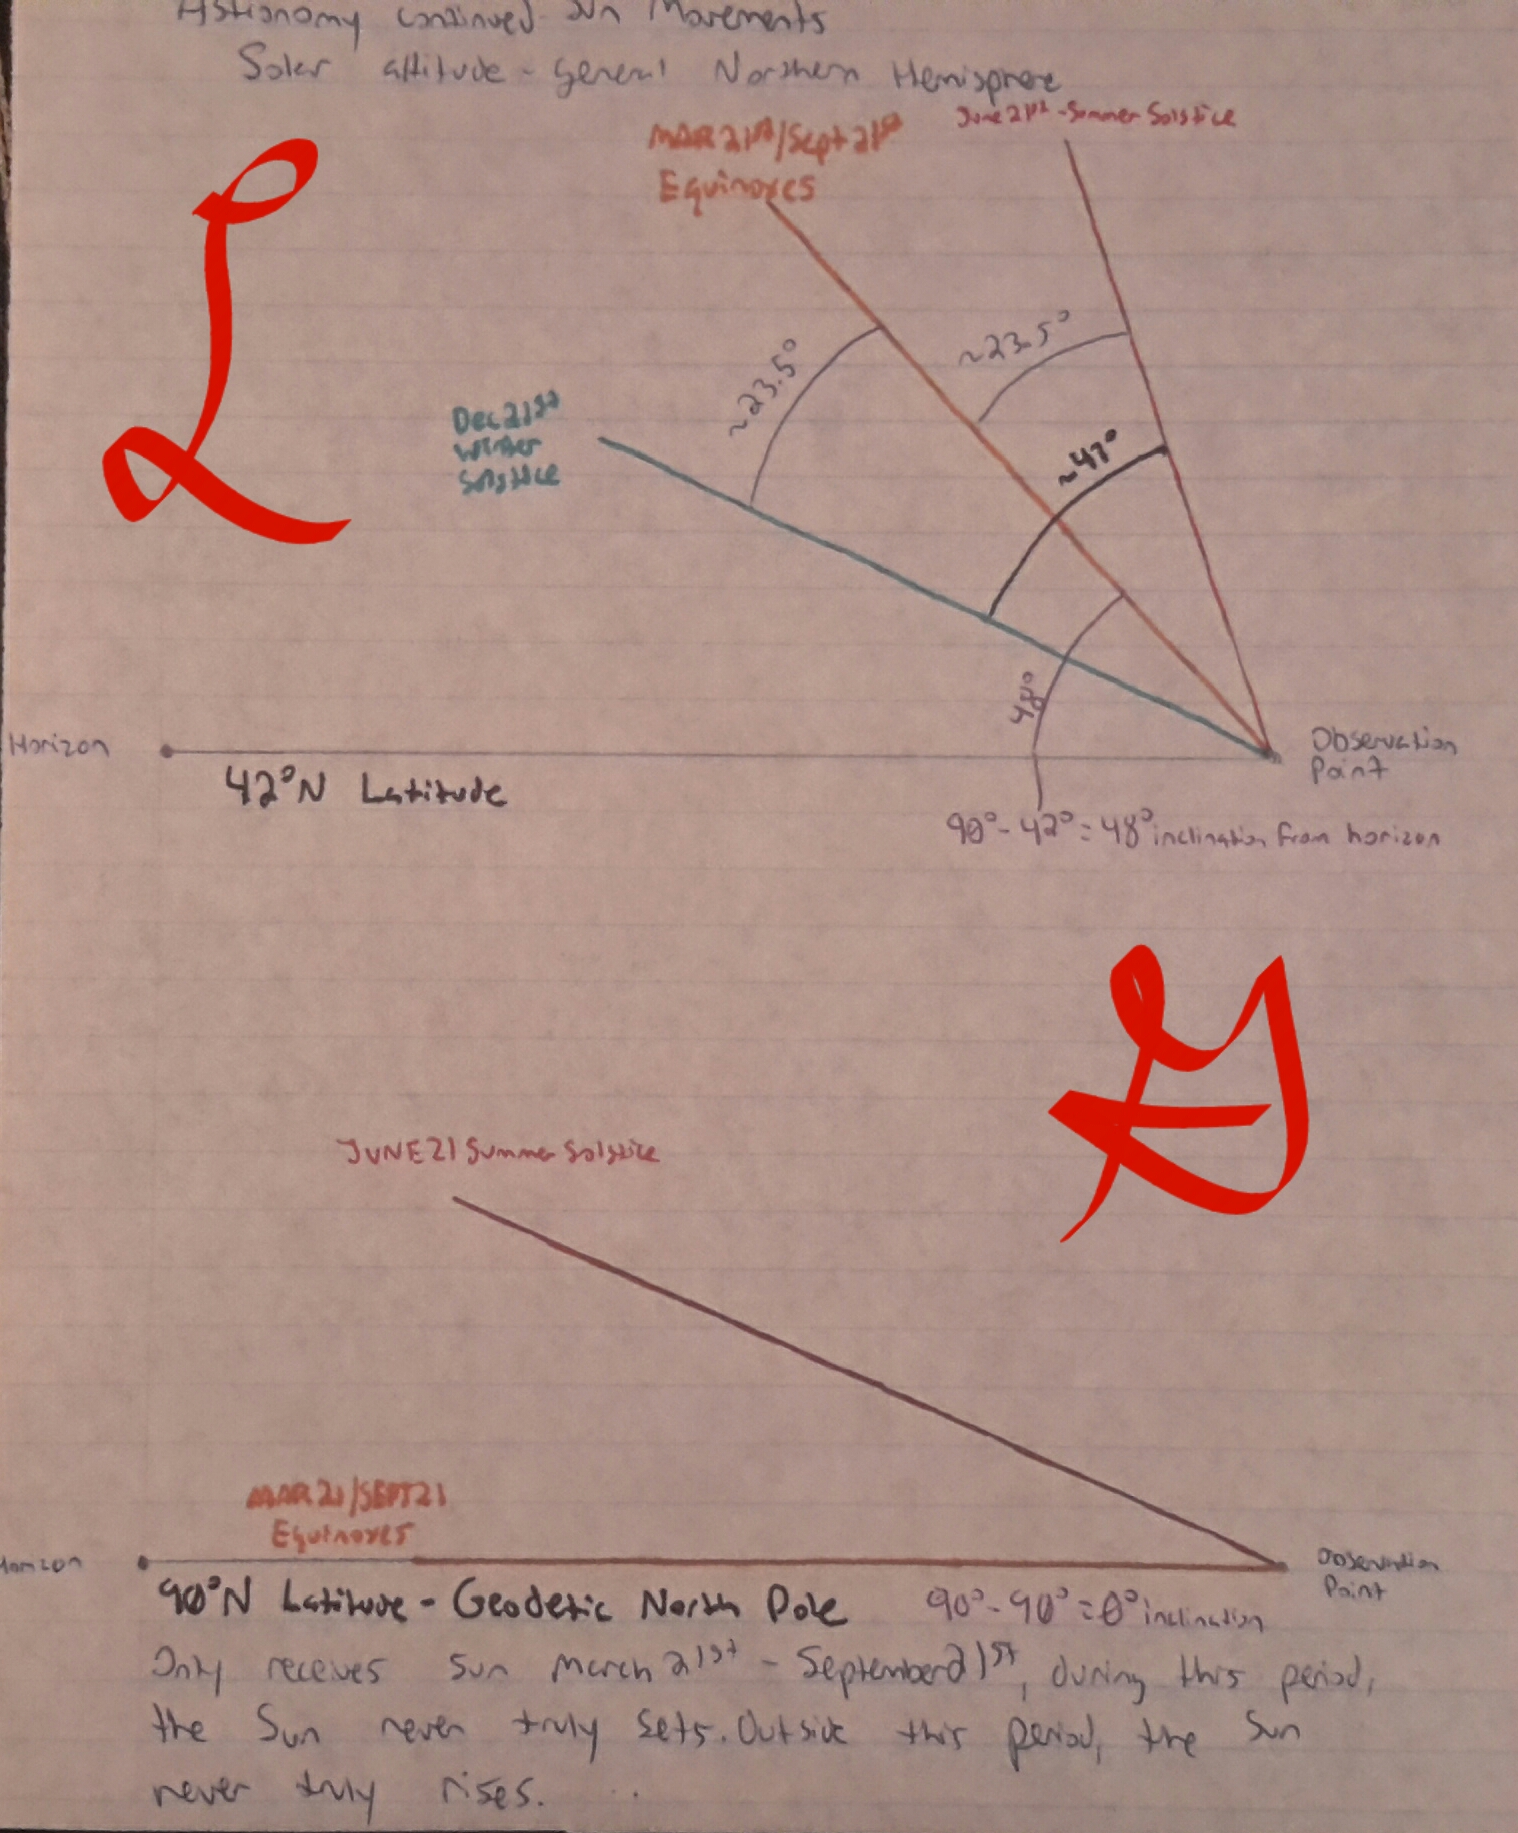 Astronomy continued - Sun Movements
Solar altitude - general Northern Hemisphere
June 21st - Summer Solstice
MAR 21st/Sept 21st
Equinoxes
L
~23.5°
~23.5°
Dec 21st
Winter
Solstice
~47°
48°
Horizon
Observation
Point
42°N Latitude
90° - 42° = 48° inclination from horizon
G
JUNE 21 Summer Solstice
MAR 21/SEPT 21
Equinoxes
Horizon
Observation
Point
90°N Latitude - Geodetic North Pole
90° - 90° = 0° inclination
Only receives sun March 21st - September 21st, during this period,
the Sun never truly sets. Outside this period, the Sun
never truly rises.